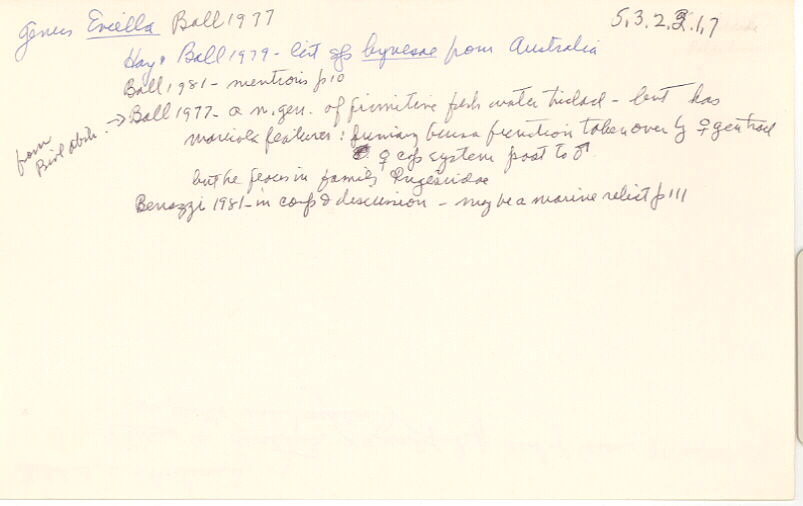 genus Eviella Ball 1977 5.3.2.3.1.7
Hay & Ball 1979 - list sps hynesae from Australia
Ball 1981 - mentions p 10
from Biol abstr. → Ball 1977 - a n. gen. of primitive fresh water triclad - but has
maricola features: primary bursa function taken over by ♀ gen tract
♀ cop system post to ♂
but he places in family Dugesiidae
Benazzi 1981 - in comp & discussion - may be a marine relict p 111